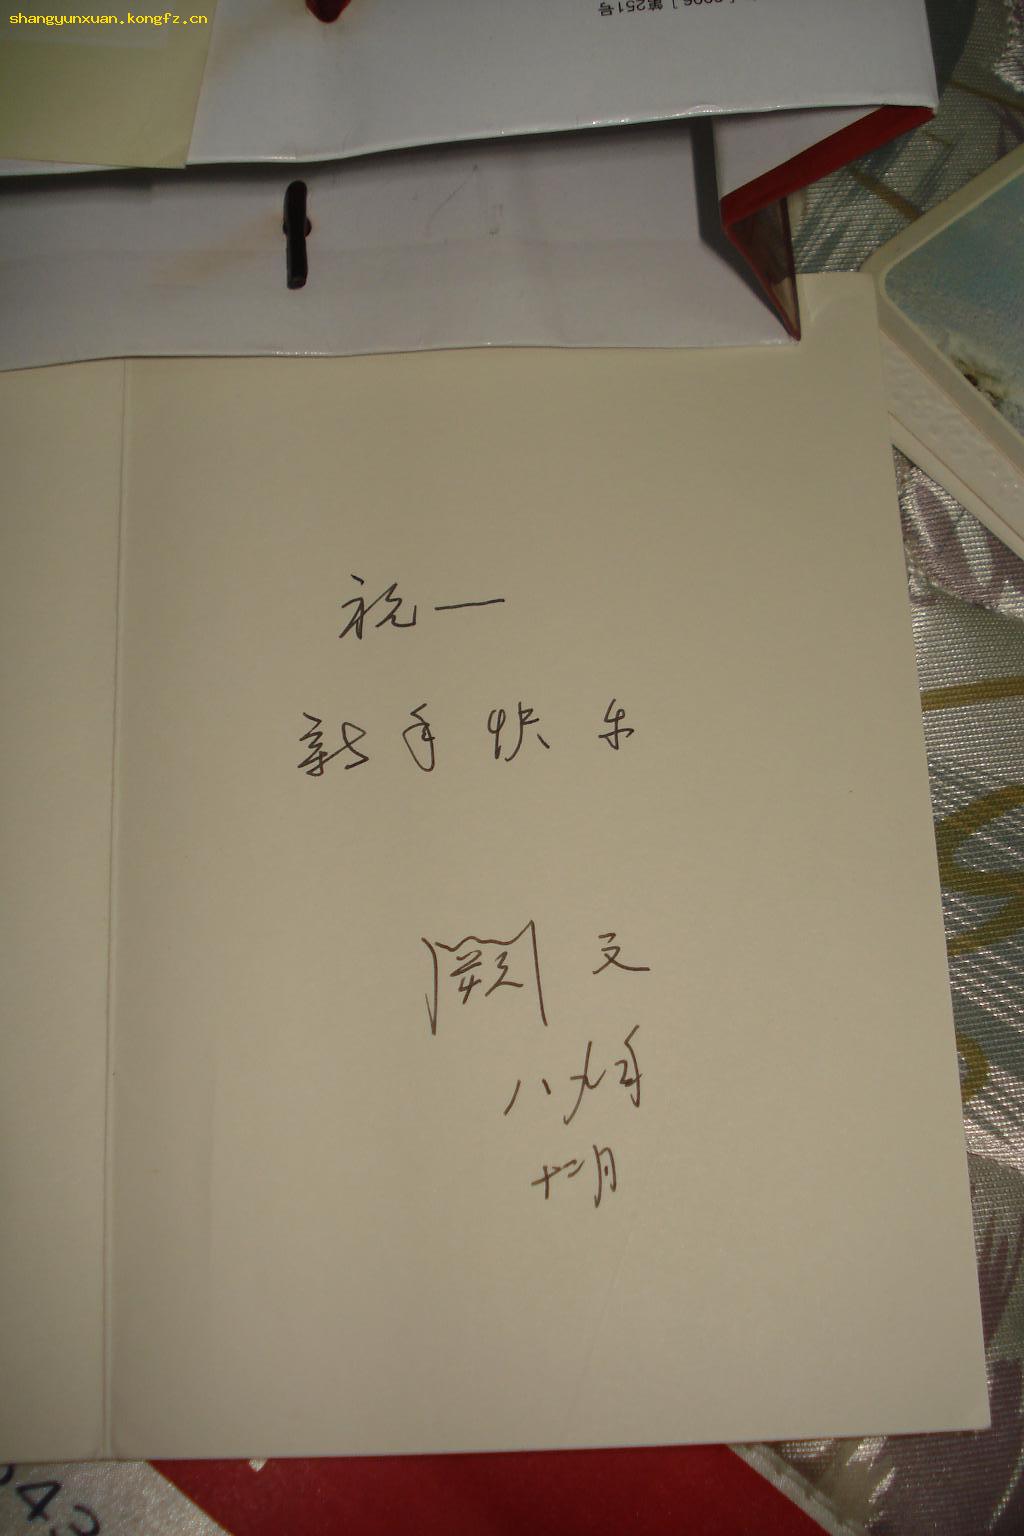 shangyunxuan.kongfz.cn
2006］第251号
祝一
新年快乐
阙文
八九年
十二月
043